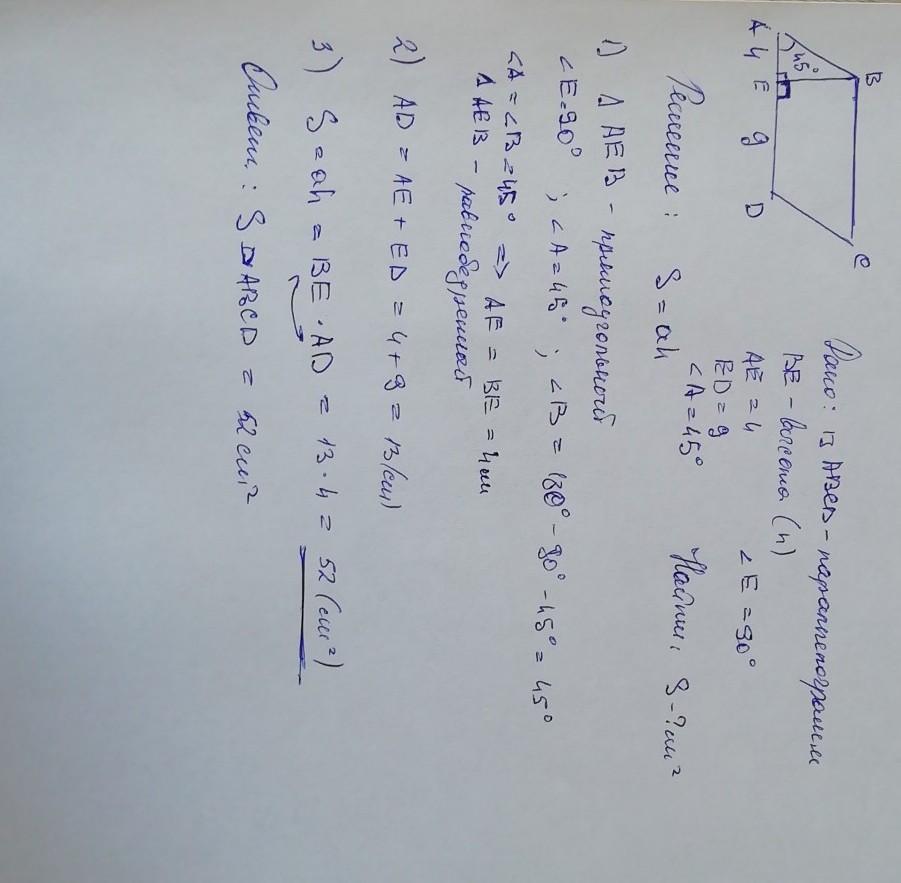 B C
45°
A 4 E 9 D
Дано: ABCD - параллелограмм
BE - высота (h)
AE = 4
ED = 9
∠A = 45°
∠E = 90°
Найти: S - ? см²
Решение: S = ah
1) Δ AEB - прямоугольный
∠E = 90° ; ∠A = 45° ; ∠B = 180° - 90° - 45° = 45°
∠A = ∠B = 45° => AE = BE = 4 см
Δ AEB - равнобедренный
2) AD = AE + ED = 4 + 9 = 13 (см)
3) S = ah = BE · AD = 13 · 4 = 52 (см²)
Ответ: S ABCD = 52 см²